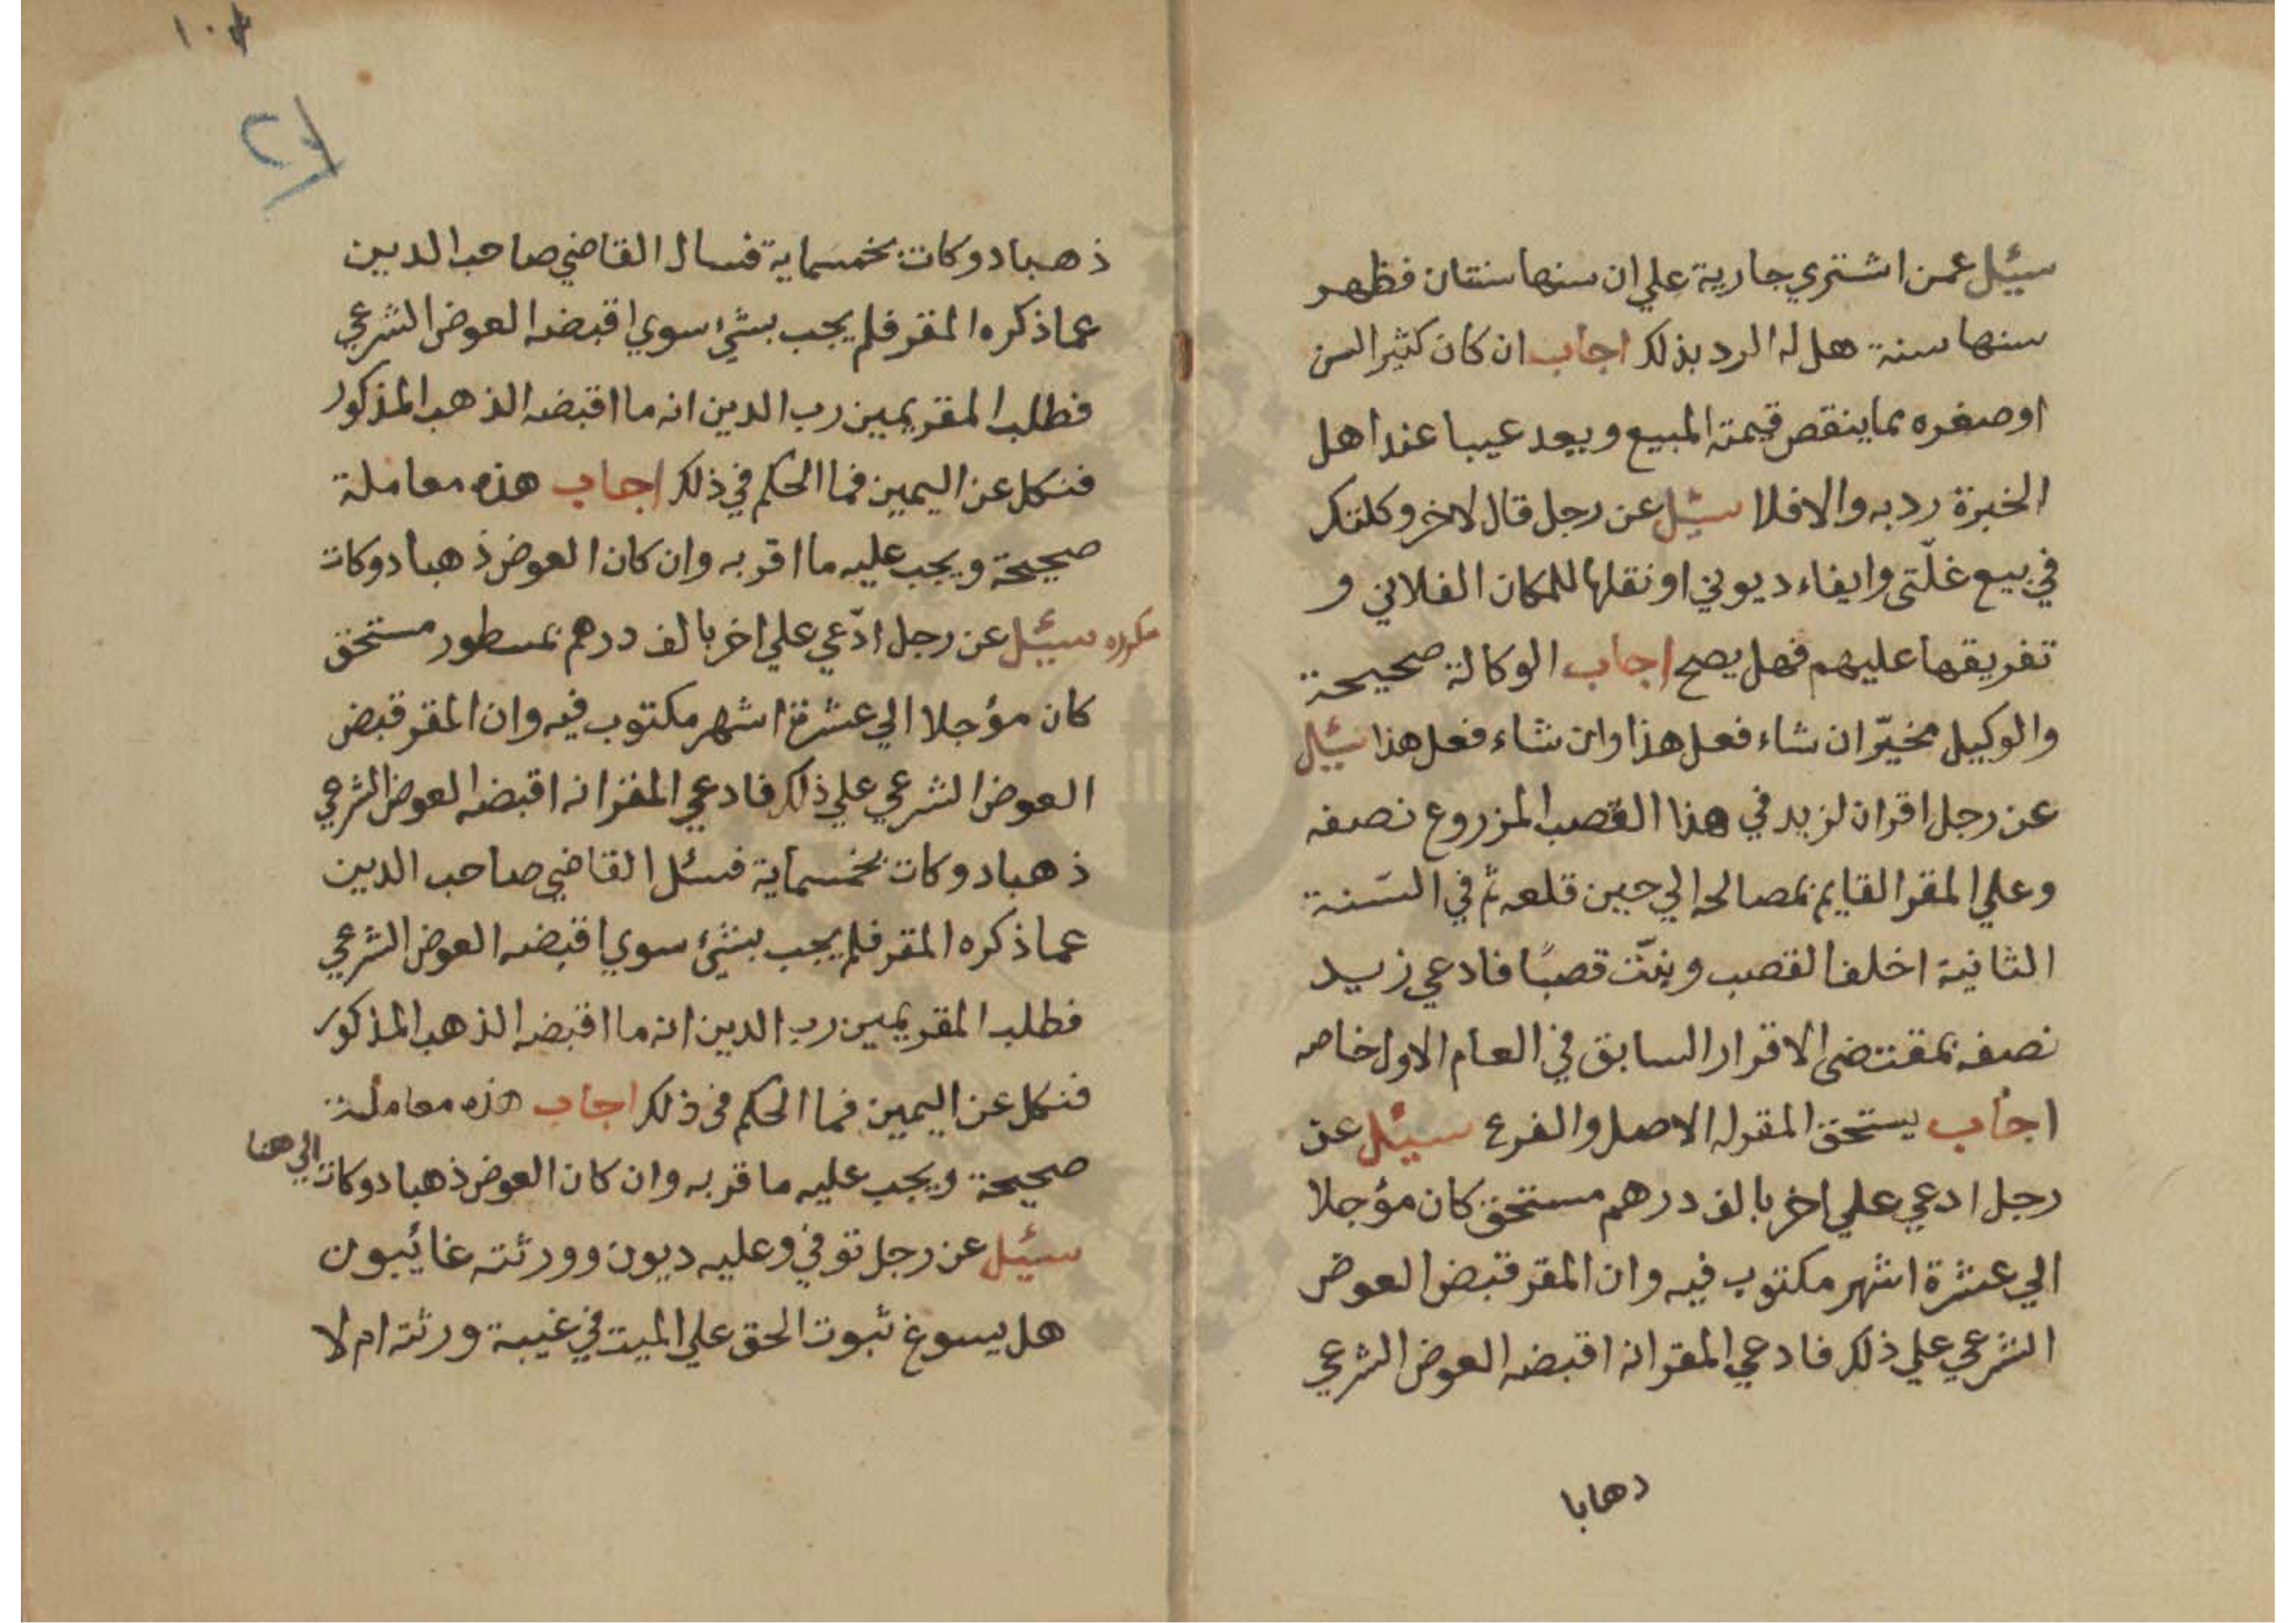 سئيل عمن اشتري جارية علي ان سنها سنتان فظهر
سنها سنة هل له الرد بذلك اجاب ان كان كثير السن
او صغره مما ينقص قيمته المبيع ويعد عيبا عند اهل
الخبرة رد به والا فلا سئيل عن رجل قال لاخر وكلتك
في بيع غلّتي وايفاء ديوني او نقلها للمكان الفلاني و
تفريقها عليهم فهل يصح اجاب الوكالة صحيحة
والوكيل مخيّر ان شاء فعل هذا وان شاء فعل هذا سئيل
عن رجل اقر ان لزيد في هذا القصب المزروع نصفه
وعلي المقر القايم بمصالحه الي حين قلعه ثم في السّنة
الثانية اخلف القصب وينبّت قصبًا فادعي زيد
نصفه بمقتضى الاقرار السابق في العام الاول خاصه
اجاب يستحق المقر له الاصل والفرع سئيل عن
رجل ادعي علي اخر بالف درهم مستحق كان مؤجلا
الي عشرة اشهر مكتوب فيه وان المقر قبض العوض
الشرعي علي ذلك فادعي المقر انه اقبضه العوض الشرعي
دهابا
١٠٣
ذهبا دوكات بخمسماية فسال القاضي صاحب الدين
عما ذكره المقر فلم يجب بشئ سوي اقبضه العوض الشرعي
فطلب المقر يمين رب الدين انه ما اقبضه الذهب المذكور
فنكل عن اليمين فما الحكم في ذلك اجاب هذه معاملة
صحيحة ويجب عليه ما اقر به وان كان العوض ذهبا دوكات
مكرره سئيل عن رجل ادّعي علي اخر بالف درهم بمسطور مستحق
كان مؤجلا الي عشرة اشهر مكتوب فيه وان المقر قبض
العوض الشرعي علي ذلك فادعي المقر انه اقبضه العوض الشرعي
ذهبا دوكات بخمسماية فسئل القاضي صاحب الدين
عما ذكره المقر فلم يجب بشئ سوي اقبضه العوض الشرعي
فطلب المقر يمين رب الدين انه ما اقبضه الذهب المذكور
فنكل عن اليمين فما الحكم في ذلك اجاب هذه معاملة
صحيحة ويجب عليه ما قر به وان كان العوض ذهبا دوكات الي هنا
سئيل عن رجل توفي وعليه ديون وورثته غائيبون
هل يسوغ ثبوت الحق علي الميت في غيبة ورثته ام لا